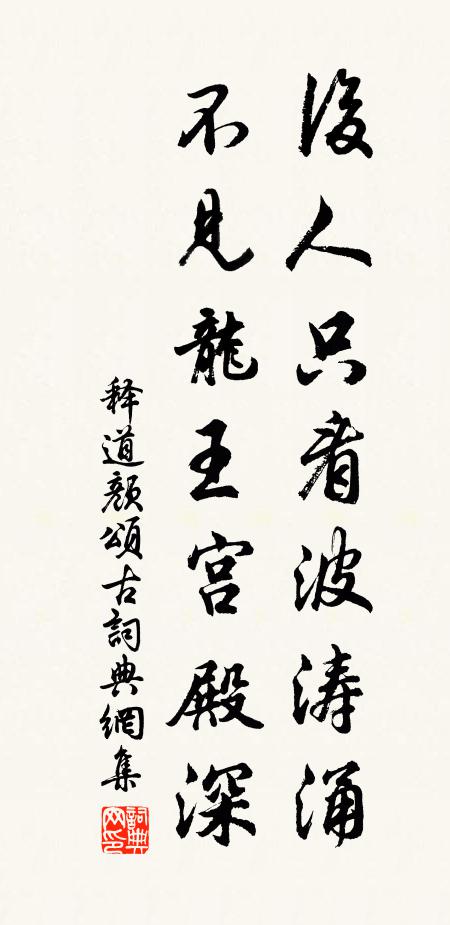 後人只看波涛涌
不見龍王宫殿深
释道颜頌古詞典網集
詞典网印